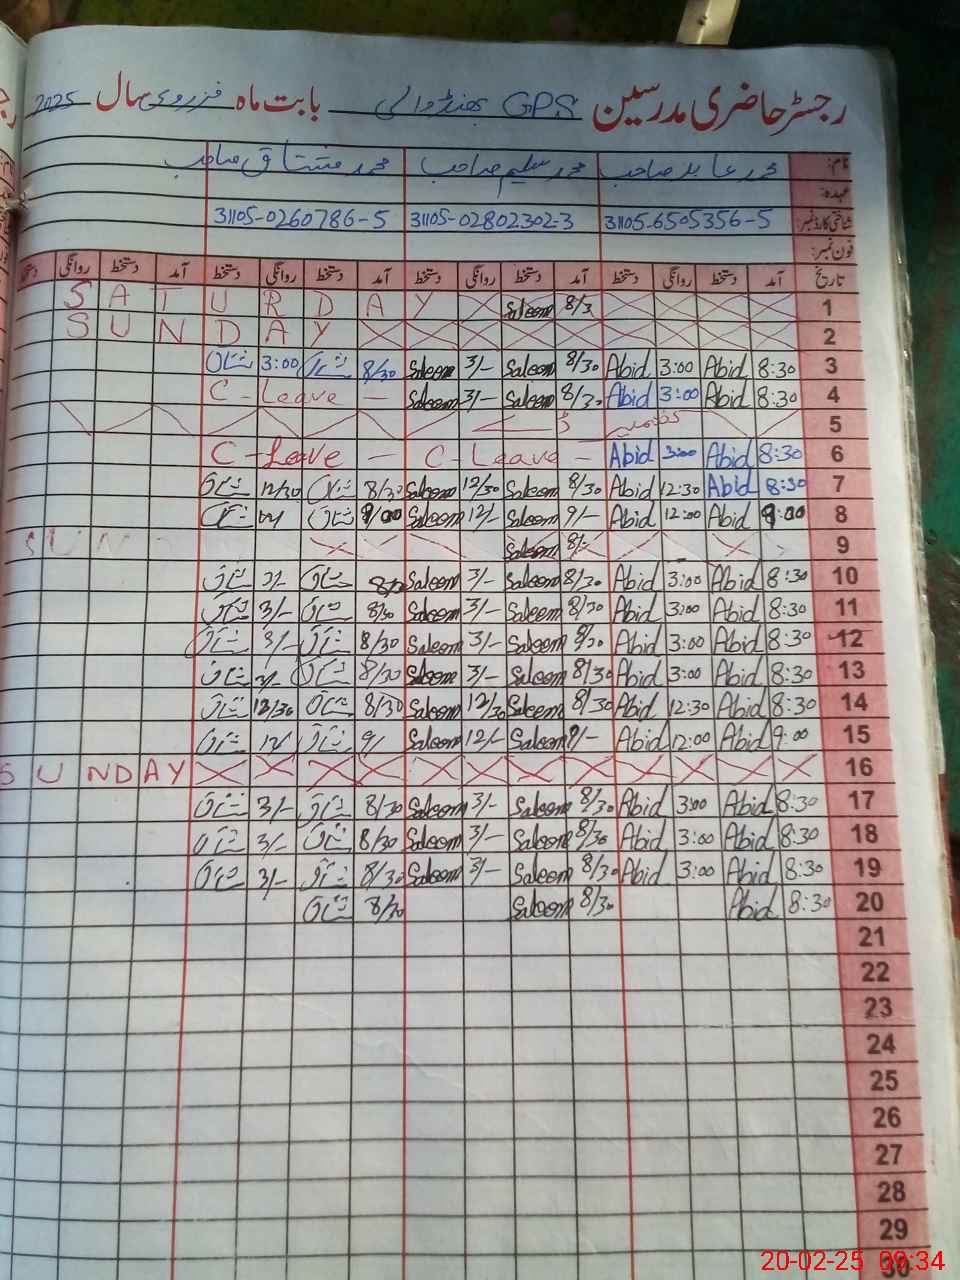 رجسٹر حاضری مدرسین GPS بھنڈوالی بابت ماہ فروری سال 2025
نام: محمد عابد صاحب محمد سلیم صاحب محمد مشتاق صاحب
عہدہ:
شناختی کارڈ نمبر: 31105-6505356-5 31105-02802302-3 31105-0260786-5
فون نمبر:
تاریخ آمد دستخط روانگی دستخط آمد دستخط روانگی دستخط آمد دستخط روانگی دستخط آمد دستخط روانگی
1 8/3 Saleem SATURDAY
2 SUNDAY
3 8:30 Abid 3:00 Abid 8/30 Saleem 3/- Saleem 8/30 مشتاق 3:00 مشتاق
4 8:30 Abid 3:00 Abid 8/30 Saleem 3/- Saleem C-Leave -
5
6 8:30 Abid 3:00 Abid C-Leave - C-Leave -
7 8:30 Abid 12:30 Abid 8/30 Saleem 12/30 Saleem 8/30 مشتاق 12/30 مشتاق
8 9:00 Abid 12:00 Abid 9/- Saleem 12/- Saleem 9/00 مشتاق مشتاق
9 8/- Saleem SUN
10 8:30 Abid 3:00 Abid 8/30 Saleem 3/- Saleem مشتاق 3/- مشتاق
11 8:30 Abid 3:00 Abid 8/30 Saleem 3/- Saleem 8/30 مشتاق 3/- مشتاق
12 8:30 Abid 3:00 Abid 8/30 Saleem 3/- Saleem 8/30 مشتاق 3/- مشتاق
13 8:30 Abid 3:00 Abid 8/30 Saleem 3/- Saleem 8/30 مشتاق 3/- مشتاق
14 8:30 Abid 12:30 Abid 8/30 Saleem 12/30 Saleem 8/30 مشتاق 12/30 مشتاق
15 9:00 Abid 12:00 Abid 9/- Saleem 12/- Saleem 9/ مشتاق 12/ مشتاق
16 SUNDAY
17 8:30 Abid 3:00 Abid 8/30 Saleem 3/- Saleem 8/30 مشتاق 3/- مشتاق
18 8:30 Abid 3:00 Abid 8/30 Saleem 3/- Saleem 8/30 مشتاق 3/- مشتاق
19 8:30 Abid 3:00 Abid 8/30 Saleem 3/- Saleem 8/30 مشتاق 3/- مشتاق
20 8:30 Abid 8/30 Saleem 8/30 مشتاق
21
22
23
24
25
26
27
28
29
30
20-02-25 09:34